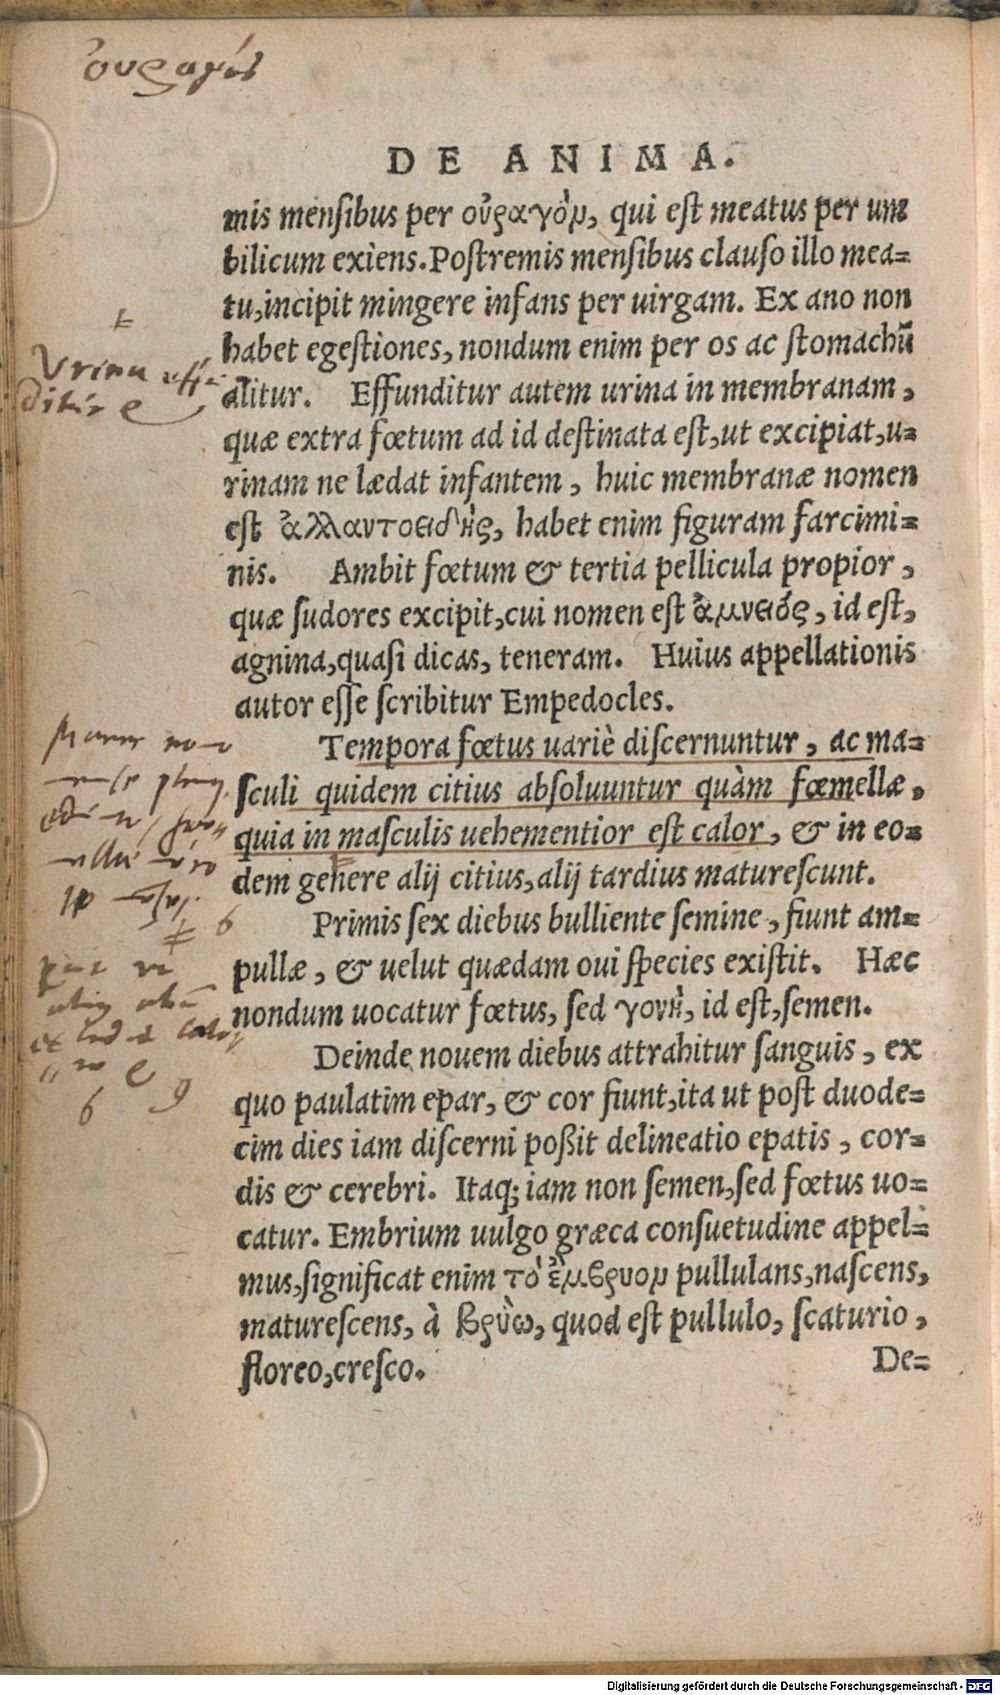 DE ANIMA.
mis mensibus per οὐραγὸν, qui est meatus per um
bilicum exiens. Postremis mensibus clauso illo mea=
tu, incipit mingere infans per uirgam. Ex ano non
habet egestiones, nondum enim per os ac stomachū
alitur. Effunditur autem urina in membranam,
quæ extra fœtum ad id destinata est, ut excipiat, u=
rinam ne lædat infantem, huic membranæ nomen
est ἀλλαντοειδὴς, habet enim figuram farcimi=
nis. Ambit fœtum & tertia pellicula propior,
quæ sudores excipit, cui nomen est ἀμνειός, id est,
agnina, quasi dicas, teneram. Huius appellationis
autor esse scribitur Empedocles.
Tempora fœtus uariè discernuntur, ac ma=
sculi quidem citius absoluuntur quàm fœmellæ,
quia in masculis uehementior est calor, & in eo=
dem genere alij citius, alij tardius maturescunt.
Primis sex diebus bulliente semine, fiunt am=
pullæ, & uelut quædam oui species existit. Hæc
nondum uocatur fœtus, sed γονὴ, id est, semen.
Deinde nouem diebus attrahitur sanguis, ex
quo paulatim epar, & cor fiunt, ita ut post duode=
cim dies iam discerni poßit delineatio epatis, cor=
dis & cerebri. Itaq; iam non semen, sed fœtus uo=
catur. Embrium uulgo græca consuetudine appel=
mus, significat enim τὸ ἔμβρυον pullulans, nascens,
maturescens, à βρύω, quod est pullulo, scaturio,
floreo, cresco.
De=
Urina
6
6 9
Digitalisierung gefördert durch die Deutsche Forschungsgemeinschaft - DFG